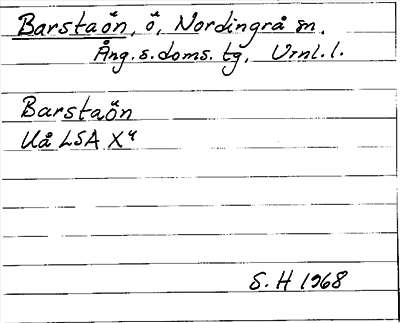 Barstaön, ö, Nordingrå sn.
Ång. s. doms. tg, Vrnl. l.
Barstaön
Uå LSA X4
S. H 1968